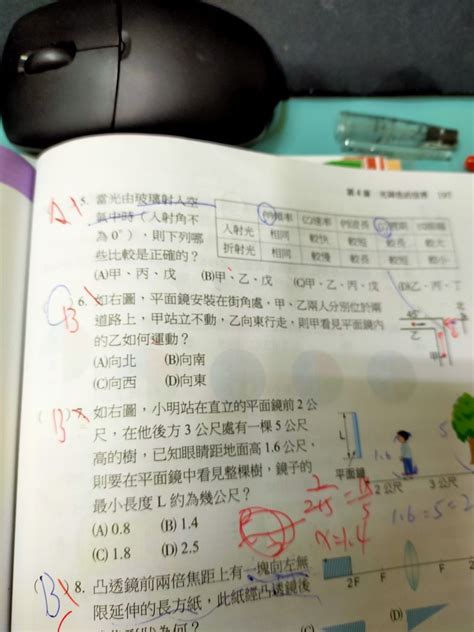 第4章 光與色的世界 197
5. 當光由玻璃射入空
氣中時(入射角不
為0°),則下列哪
些比較是正確的?
(甲)頻率 (乙)速率 (丙)波長
入射光 相同 較快 較短 較長 較小
折射光 相同 較慢 較長 較短
(A)甲、丙、戊 (B)甲、乙、戊 (C)甲、乙、丙、戊 (D)乙、丁、戊
B 6. 如右圖,平面鏡安裝在街角處,甲、乙兩人分別位於兩
道路上,甲站立不動,乙向東行走,則甲看見平面鏡內
的乙如何運動?
(A)向北 (B)向南
(C)向西 (D)向東
45°
乙
甲
B 如右圖,小明站在直立的平面鏡前2公
尺,在他後方3公尺處有一棵5公尺
高的樹,已知眼睛距地面高1.6公尺,
則要在平面鏡中看見整棵樹,鏡子的
最小長度L約為幾公尺?
(A) 0.8 (B) 1.4
(C) 1.8 (D) 2.5
L
1.6
5
平面鏡 2公尺 3公尺
x=1.4
B 8. 凸透鏡前兩倍焦距上有一塊向左無
限延伸的長方紙,此紙經凸透鏡後
2F F F 2F